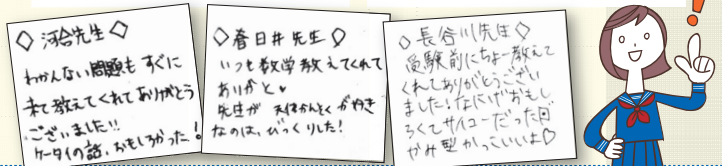 ◇河合先生◇
わかんない問題もすぐに
来て教えてくれてありがとう
ございました!!
ケータイの話、おもしろかった!
◇春日井先生◇
いつも数学教えてくれて
ありがと♥
先生が
なのは、びっくりした!
◇長谷川先生◇
受験前にちょー教えて
くれてありがとうござい
ました!なにげおもし
ろくてサイコーだった
かみ型かっこいいよ♡
!